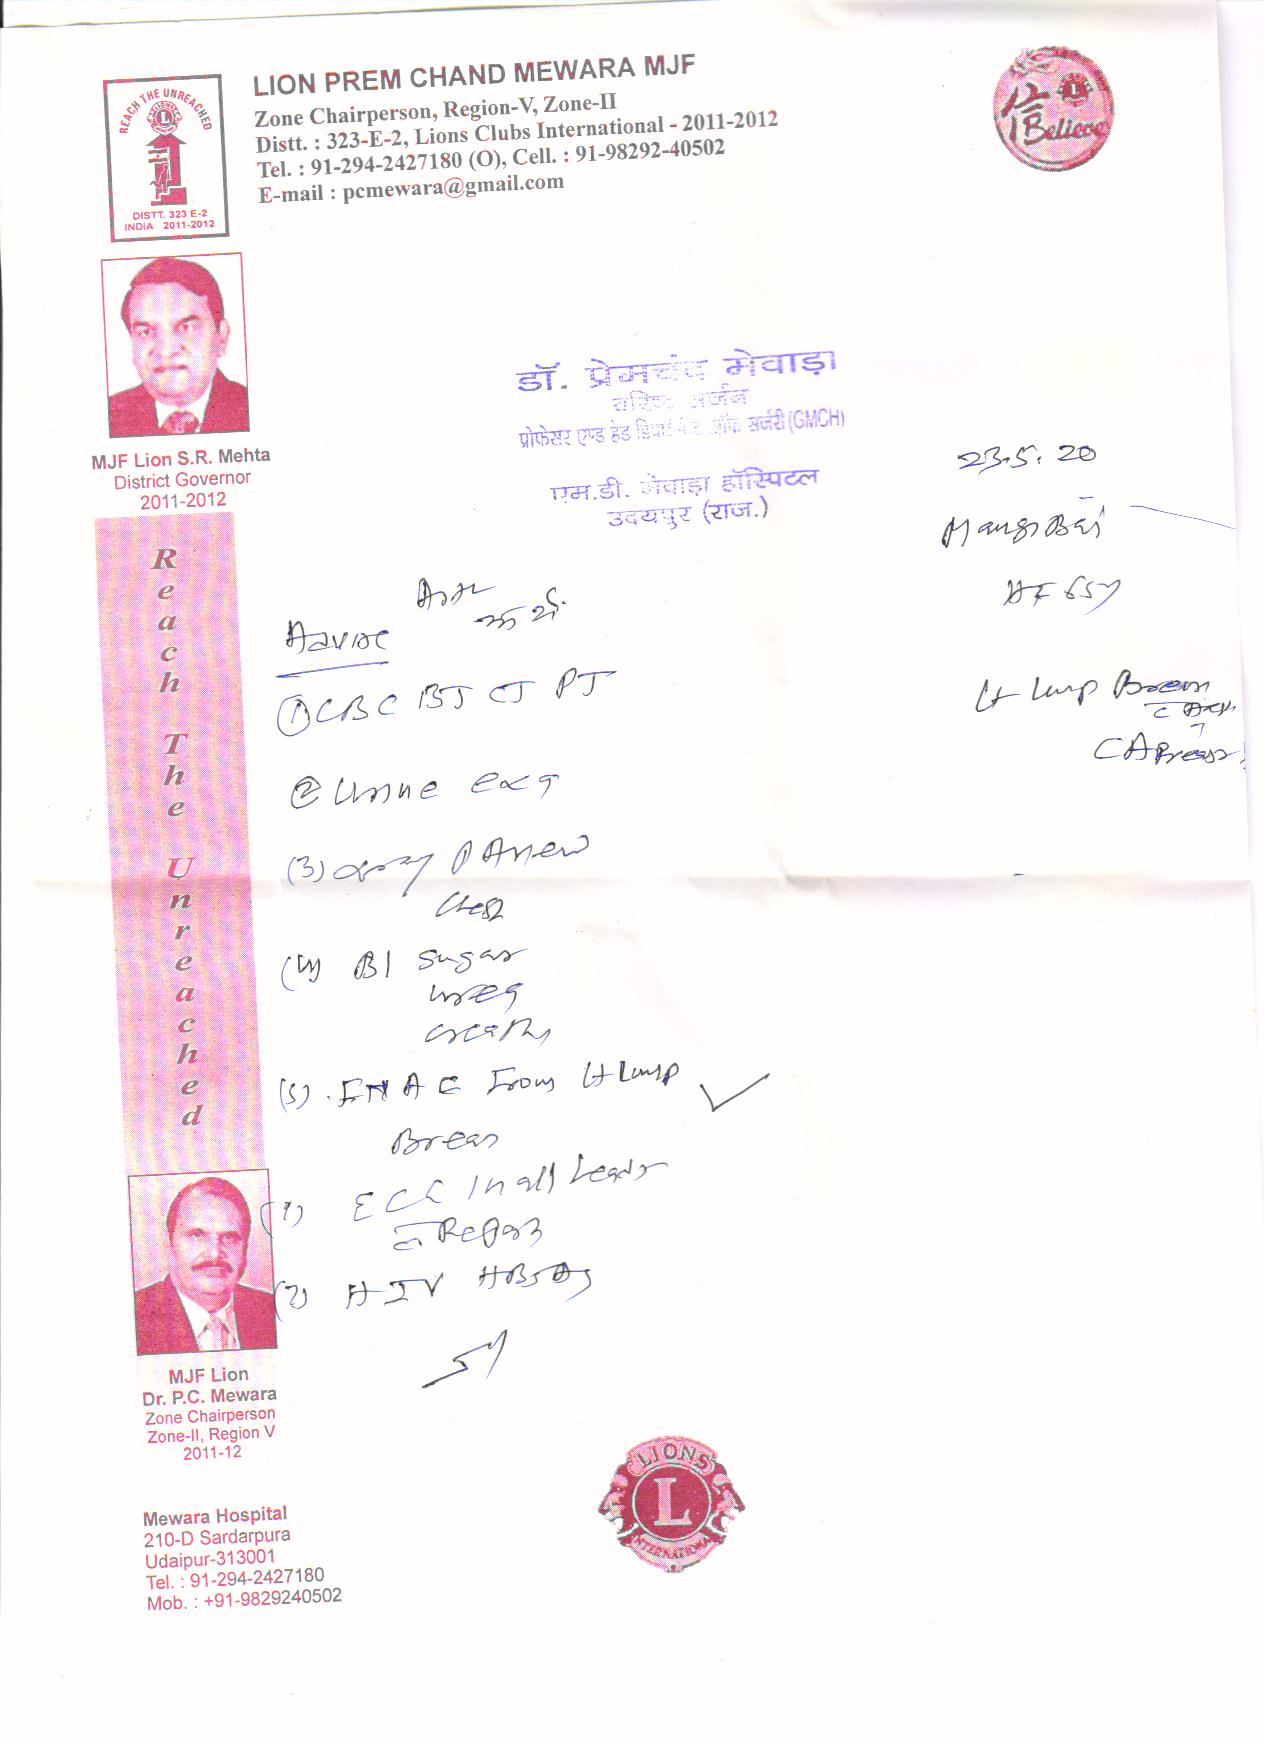 LION PREM CHAND MEWARA MJF
Zone Chairperson, Region-V, Zone-II
Distt. : 323-E-2, Lions Clubs International - 2011-2012
Tel. : 91-294-2427180 (O), Cell. : 91-98292-40502
E-mail : pcmewara@gmail.com
REACH THE UNREACHED
DISTT. 323 E-2
INDIA 2011-2012
信
I Believe
MJF Lion S.R. Mehta
District Governor
2011-2012
डॉ. प्रेमचंद मेवाड़ा
वरिष्ठ सर्जन
प्रोफेसर एण्ड हेड ऑफ सर्जरी (GMCH)
एम.डी. मेवाड़ा हॉस्पिटल
उदयपुर (राज.)
23.5.20
Mangi Bai
HF 65y
Lt Lump Breast
CA Breast
Advise
① CBC BT CT PT
② Urine
(3) PA View
Chest
(4) Bl Sugar
Urea
(5) FNAC From Lt Lump
Breast
(1) ECG In all Leads
Report
(2) HIV HBsAg
Reach The Unreached
MJF Lion
Dr. P.C. Mewara
Zone Chairperson
Zone-II, Region V
2011-12
Mewara Hospital
210-D Sardarpura
Udaipur-313001
Tel. : 91-294-2427180
Mob. : +91-9829240502
LIONS
L
INTERNATIONAL